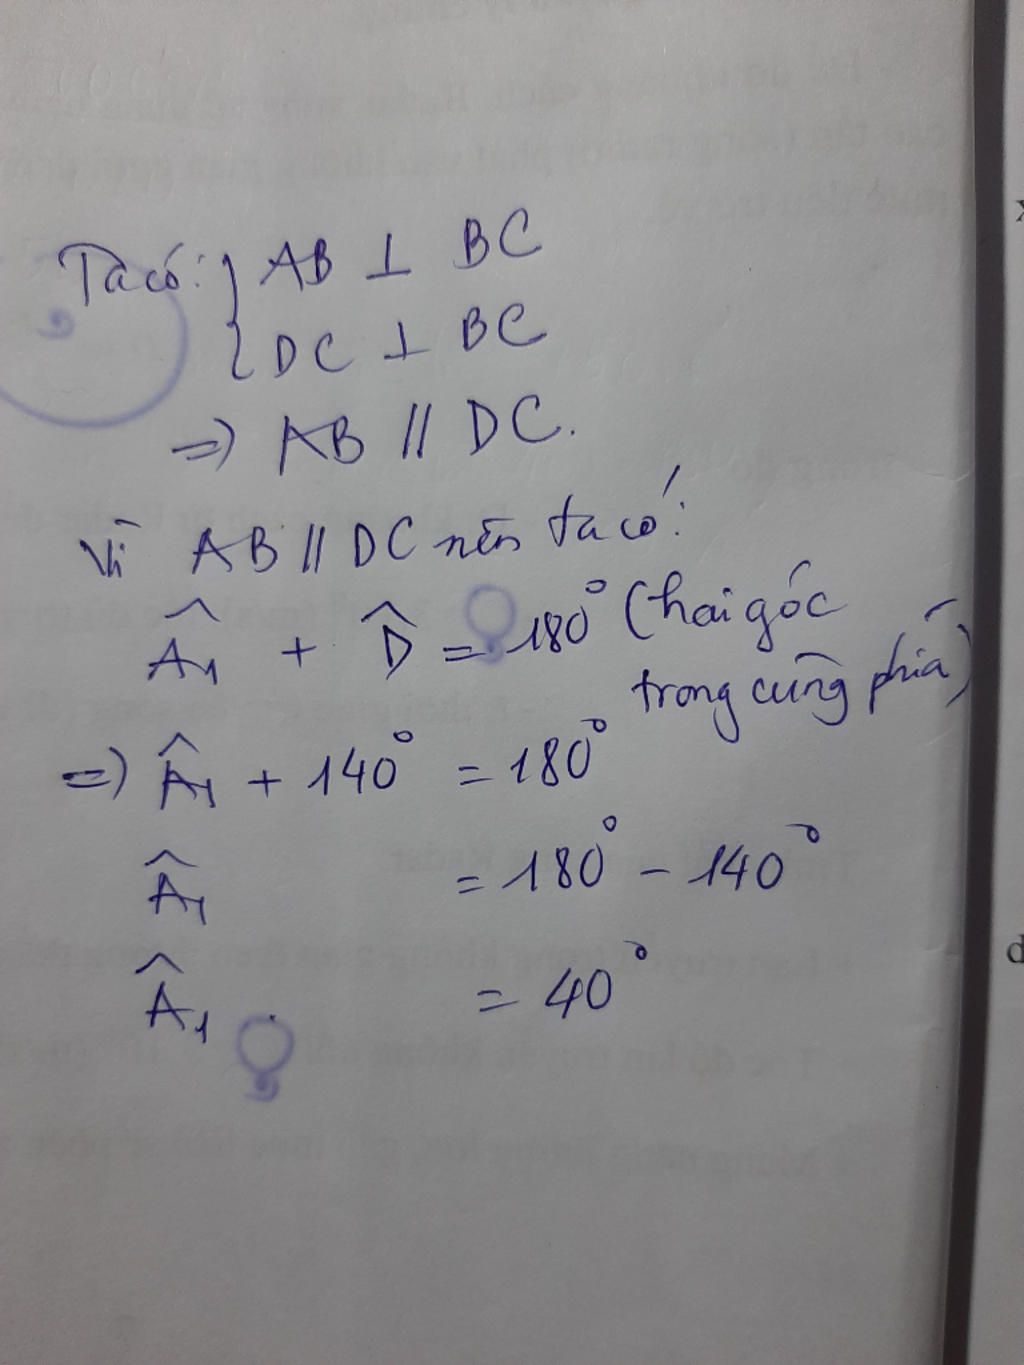 Ta có: { AB ⊥ BC
DC ⊥ BC
=> AB // DC.
Vì AB // DC nên ta có:
Â₁ + D̂ = 180° (hai góc
trong cùng phía)
=> Â₁ + 140° = 180°
Â₁ = 180° - 140°
Â₁ = 40°